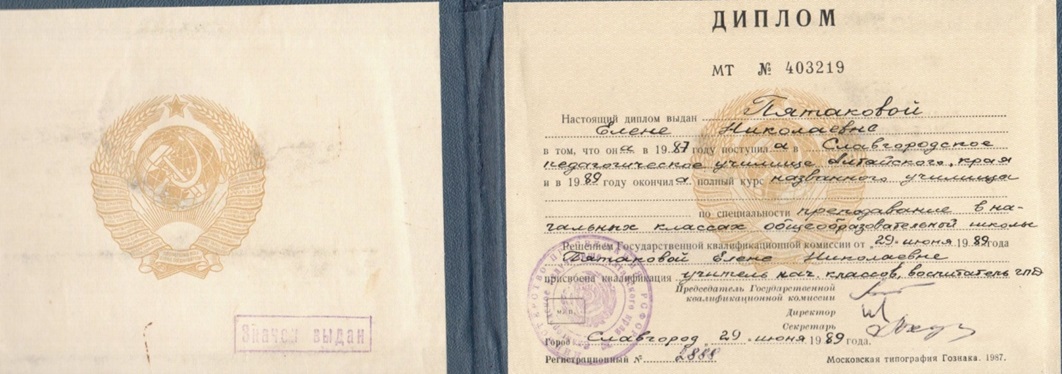 Значок выдан
ДИПЛОМ
МТ № 403219
Настоящий диплом выдан Пятаковой
Елене Николаевне
в том, что она в 1987 году поступила в Славгородское
педагогическое училище Алтайского края
и в 1989 году окончила полный курс названного училища
по специальности преподавание в на-
чальных классах общеобразовательной школы
Решением Государственной квалификационной комиссии от 29 июня 1989 года
Пятаковой Елене Николаевне
присвоена квалификация учитель нач. классов, воспитатель ГПД
Председатель Государственной
квалификационной комиссии
Директор
Секретарь
Город Славгород, 29 июня 1989 года.
Регистрационный № 2888
Московская типография Гознака. 1987.